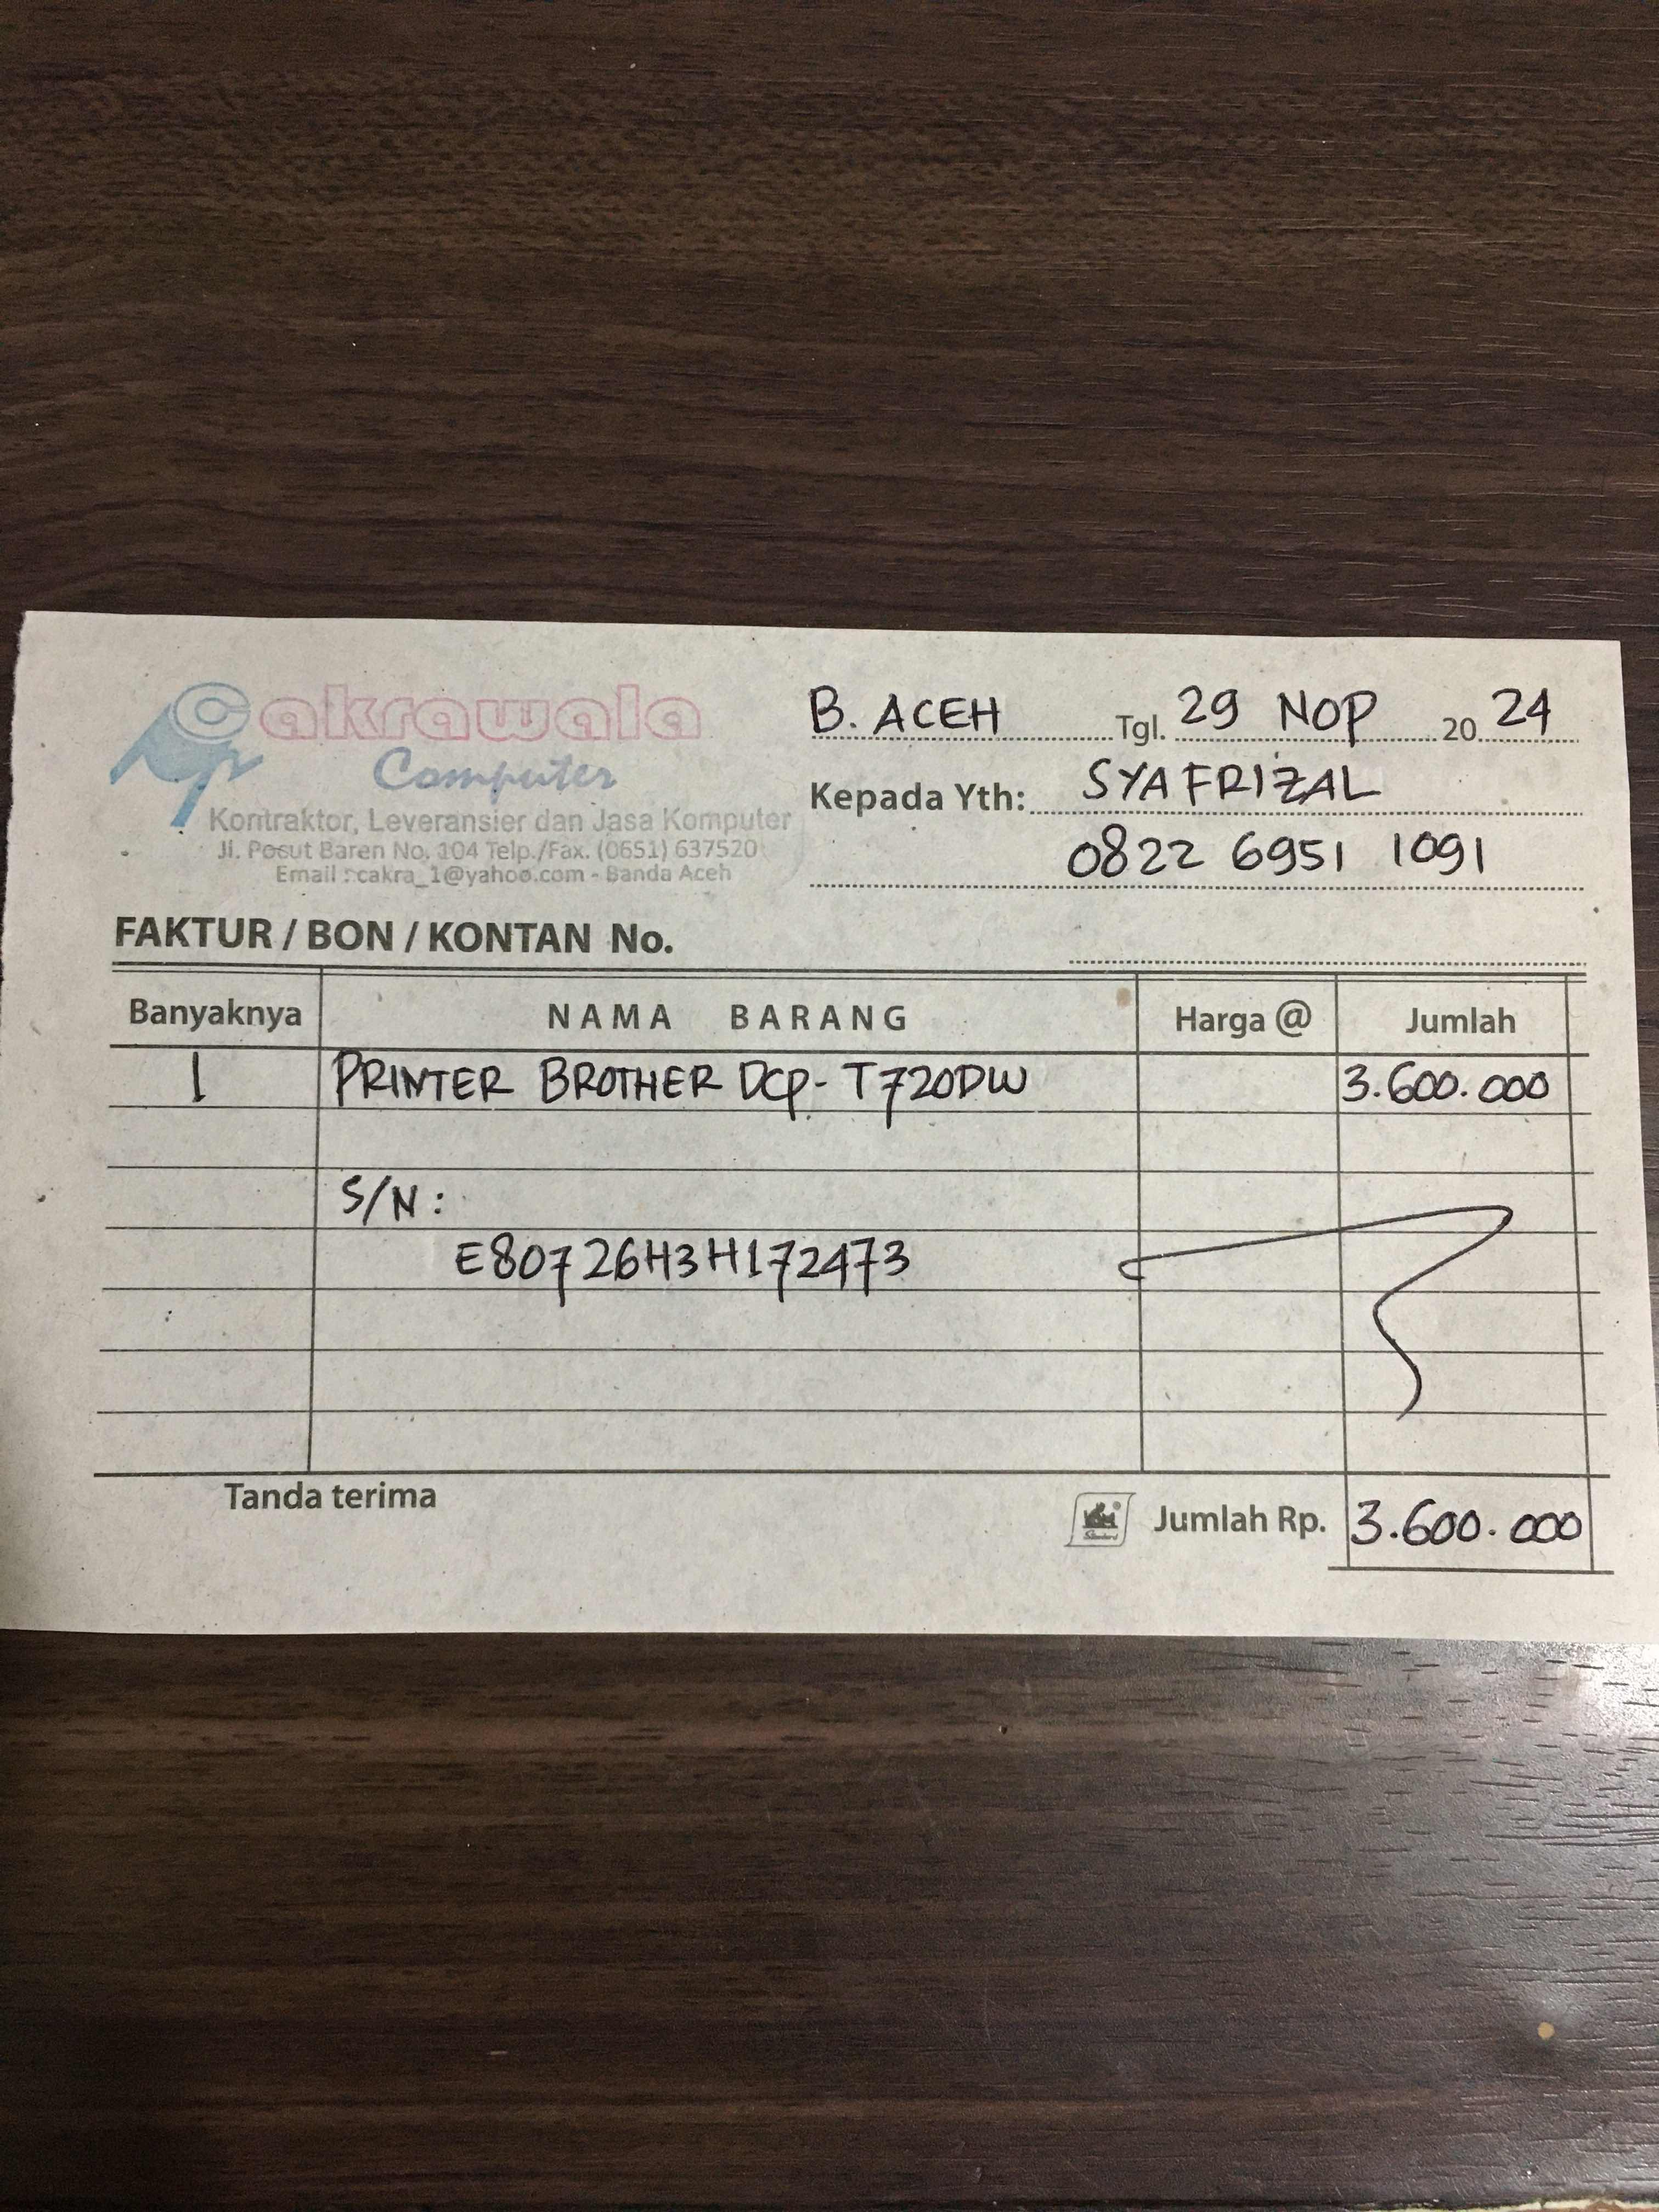 Cakrawala
Computer
Kontraktor, Leveransier dan Jasa Komputer
Jl. Pocut Baren No. 104 Telp./Fax. (0651) 637520
Email : cakra_1@yahoo.com - Banda Aceh
B. ACEH Tgl. 29 NOP 20 24
Kepada Yth: SYAFRIZAL
0822 6951 1091
FAKTUR / BON / KONTAN No.
Banyaknya NAMA BARANG Harga @ Jumlah
1 PRINTER BROTHER DCP-T720DW 3.600.000
S/N :
E80726H3H172473
Tanda terima Jumlah Rp. 3.600.000